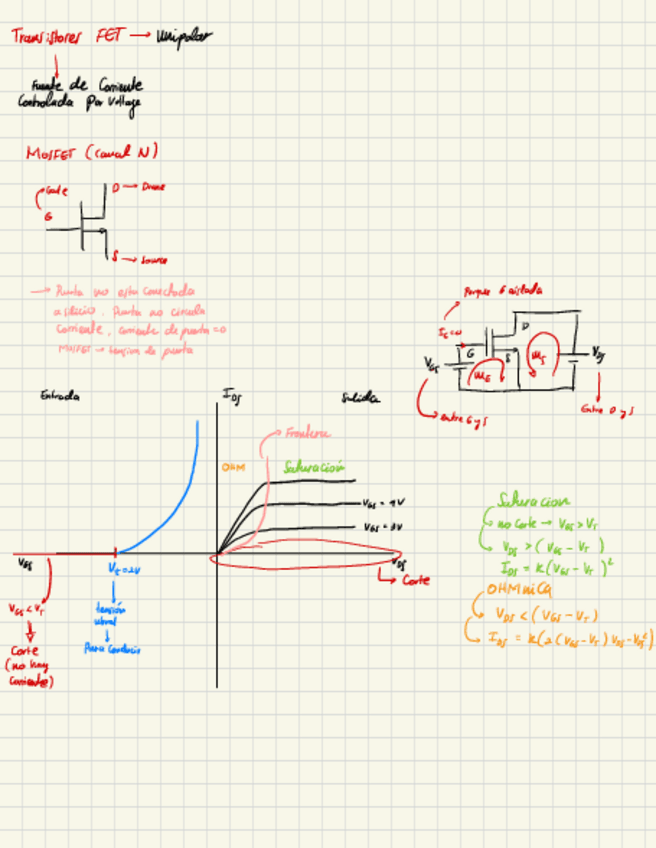 Transistores FET → Unipolar
Fuente de Corriente
Controlada por Voltage
MOSFET (canal N)
Gate
D → Drane
G
S → Source
→ Punta no esta conectada
a silicio. Punta no circula
corriente, corriente de puerta = 0
MOSFET → tension de puerta
Porque G aislada
IG=0
D
G
S
VGS
ME
MS
VDS
entre G y S
Entre D y S
Entrada
IDS
Salida
Frontera
OHM
Saturación
VGS = 4V
VGS = 3V
VGS
Vt = 2V
VDS
Corte
VGS < VT
Corte
(no hay
corriente)
tensión
umbral
Para conducir
Saturacion
no corte → VGS > VT
VDS > (VGS - VT)
IDS = K(VGS - VT)²
OHMNICA
VDS < (VGS - VT)
IDS = K(2(VGS - VT) VDS - VDS²)